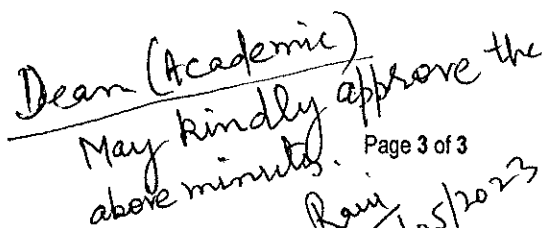 Dean (Academic)
May kindly approve the
above minutes.
Page 3 of 3
Ravi
/05/2023